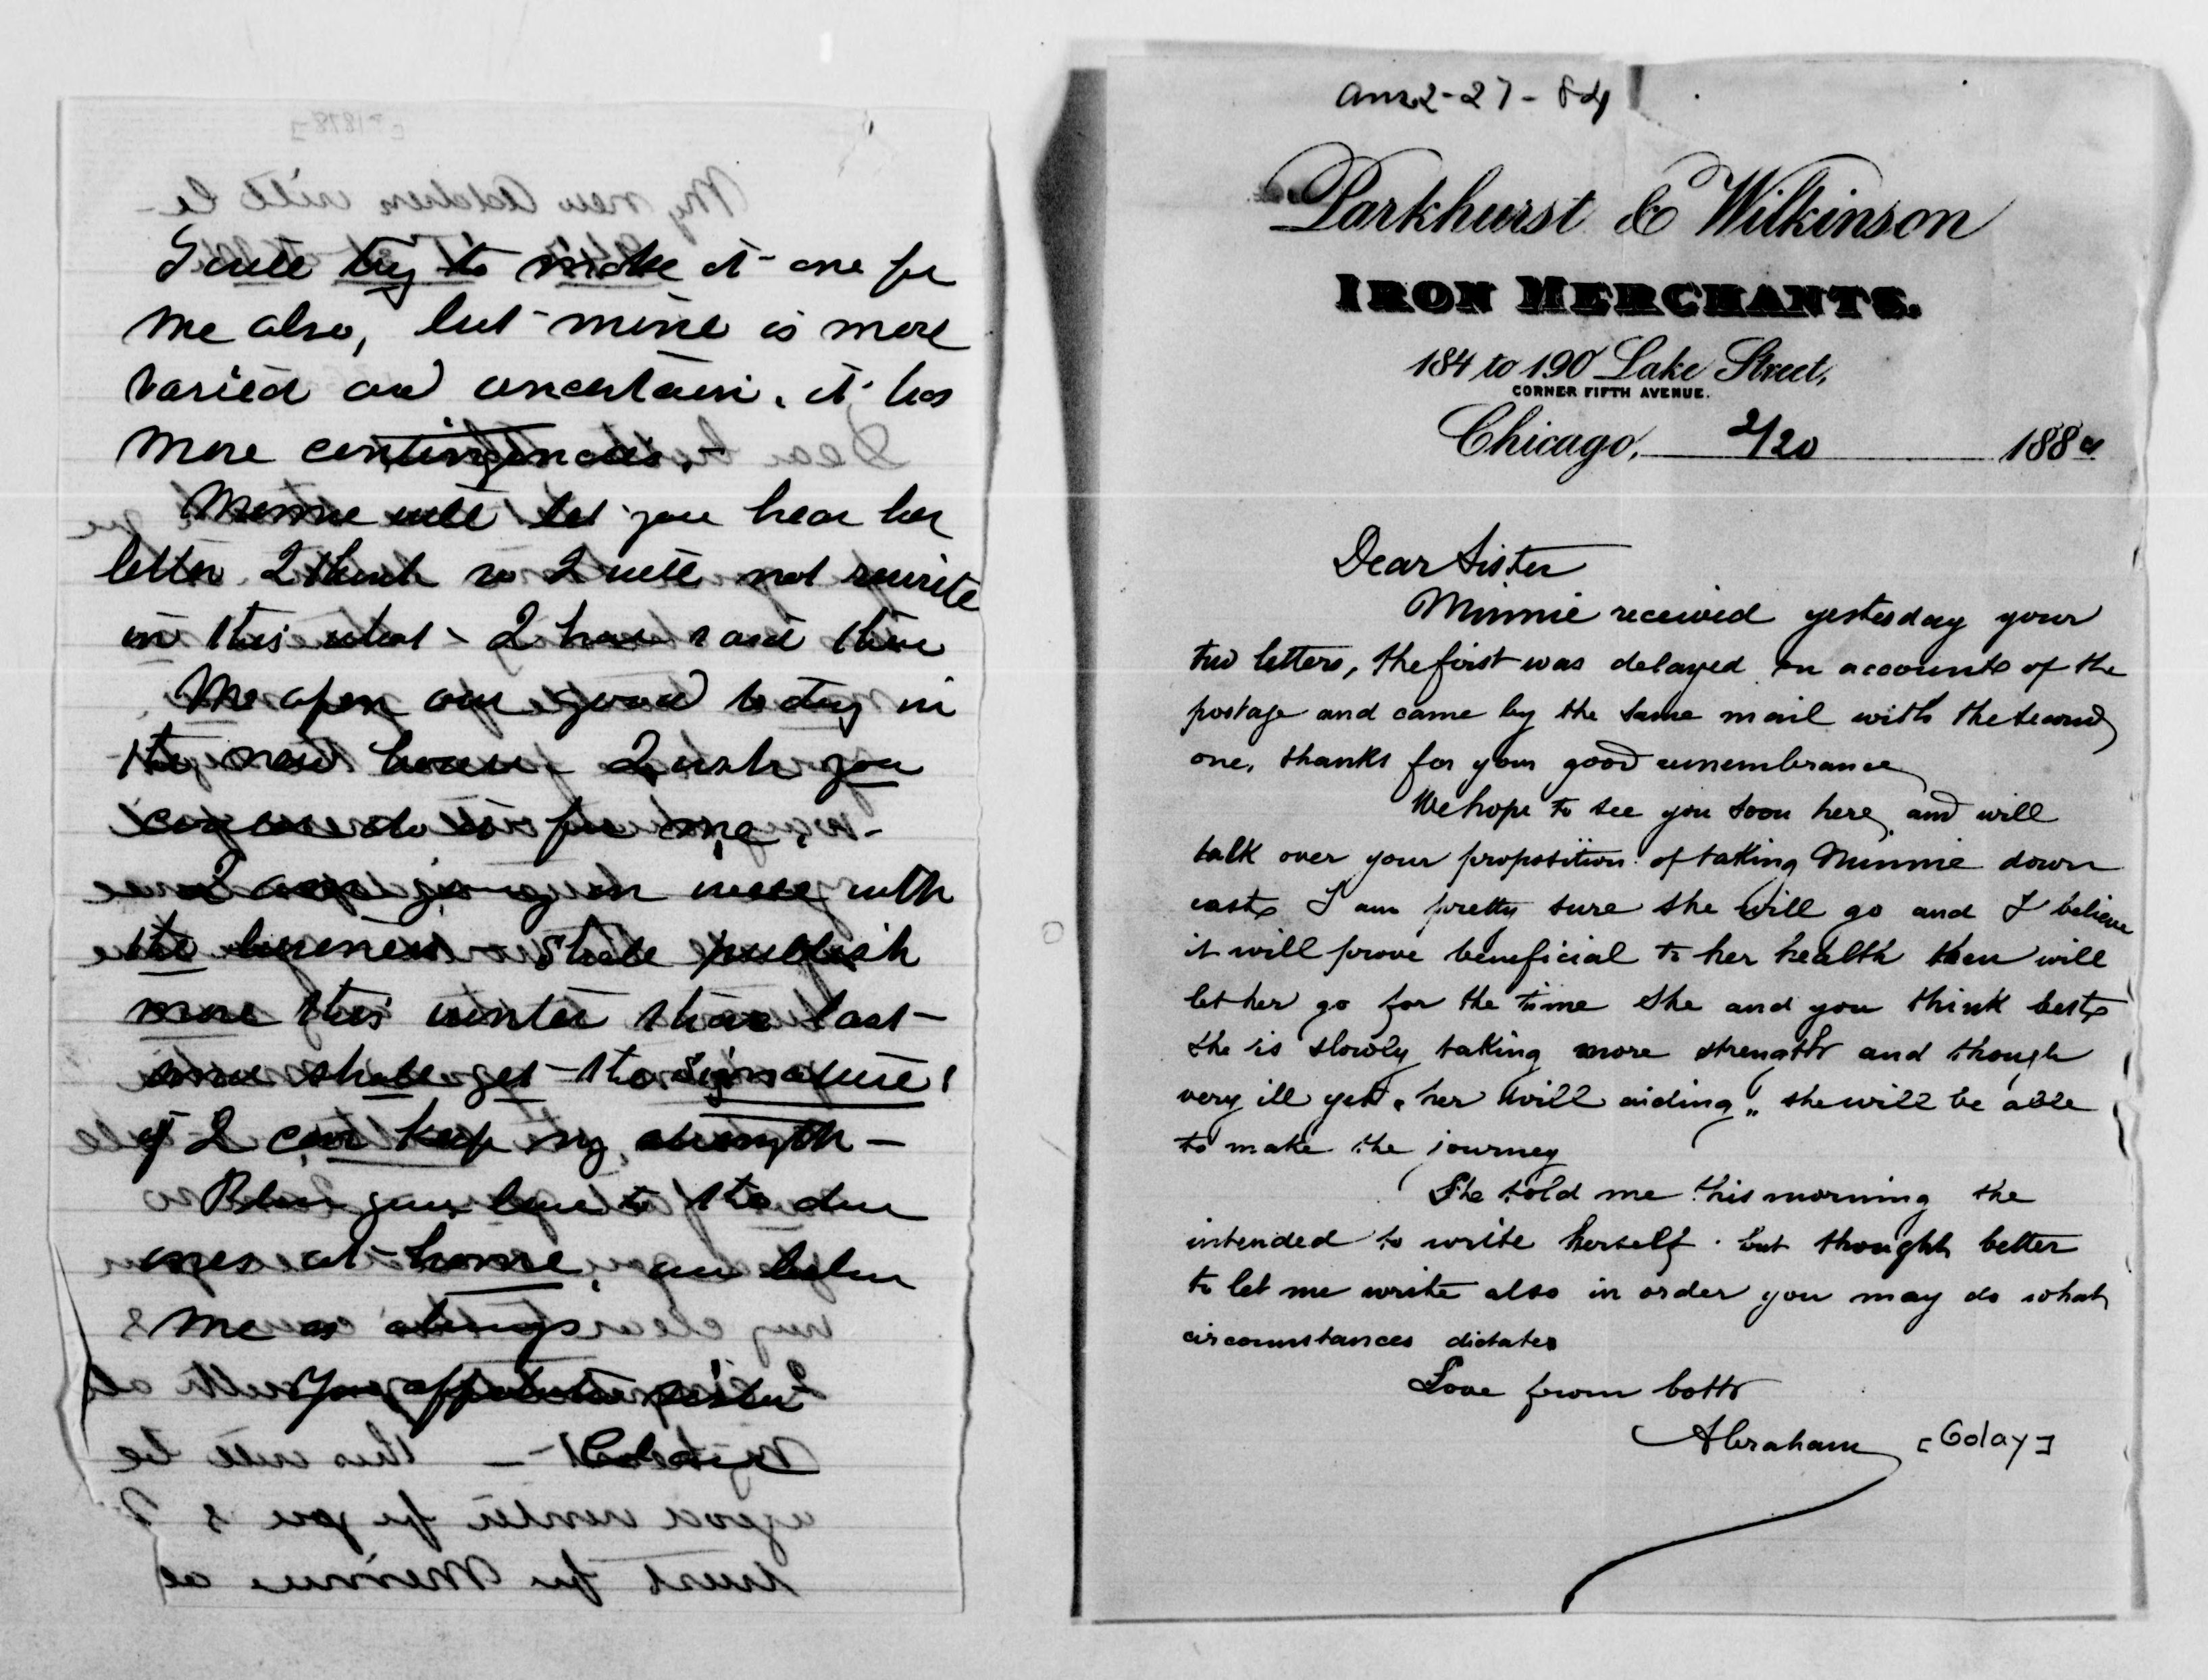 I will try to make it one for
me also, but mine is more
varied and uncertain, it has
more contingencies.
Minnie will let you hear her
letter I think so I will not rewrite
in this what I have said there
We open our good today in
the new house. I wish you
could do it for me,
I am going on well with
the business shall publish
more this winter than last
and shall get the signature!
if I can keep my strength
your love to the dear
ones at home, and
me as always
Your affectionate sister
Ans 2-27-84
Parkhurst & Wilkinson
IRON MERCHANTS.
184 to 190 Lake Street,
CORNER FIFTH AVENUE.
Chicago, 2/20 1884
Dear Sister
Minnie received yesterday your
two letters, the first was delayed on accounts of the
postage and came by the same mail with the second
one, thanks for your good remembrance
We hope to see you soon here, and will
talk over your proposition of taking Minnie down
east, I am pretty sure she will go and I believe
it will prove beneficial to her health then will
let her go for the time she and you think best,
she is slowly taking more strength and though
very ill yet, "her will aiding" she will be able
to make the journey
She told me this morning she
intended to write herself but thought better
to let me write also in order you may do what
circoumstances dictates
Love from both
Abraham [Golay]